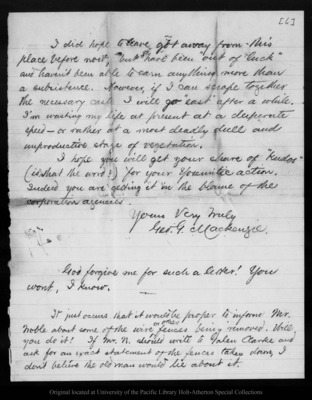 [6]
I did hope to leave get away from this
place before next, but have been "out of luck"
and haven't been able to earn anything more than
a subsistence. However, if I can scrape together
the necessary cash I will go east after a while.
I'm wasting my life at present at a desperate
speed — or rather at a most deadly dull and
unproductive stage of vegetation.
I hope you will get your share of "Kudos"
(is that the word?) for your Yosemite action.
Indeed you are getting it in the blame of the
corporation agencies.
Yours Very Truly
Geo. G. Mackenzie.
God forgive me for such a letter! You
wont, I know.
It just occurs that it would be proper to inform Mr.
Noble about some of the wire fences being removed. Will
you do it? If Mr. N. should write to Galen Clarke and
ask for an exact statement of the fences taken down, I
don't believe the old man would lie about it.
Original located at University of the Pacific Library Holt-Atherton Special Collections.